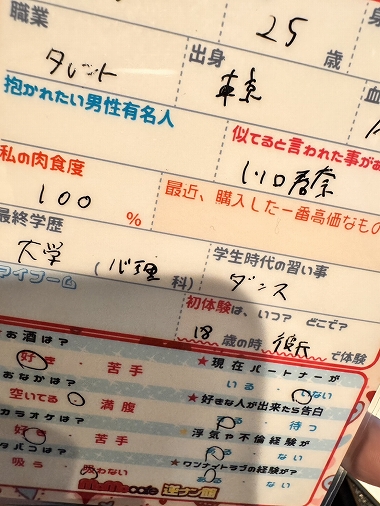 職業
25 歳
タレント
出身
東京
抱かれたい男性有名人
似てると言われた事があ
私の肉食度
川口春奈
100 %
最近、購入した一番高価なもの
最終学歴
大学 (心理 科)
学生時代の習い事
ダンス
マイブーム
初体験は、いつ? どこで?
18 歳の時 彼氏 で体験
お酒は?
好き ・ 苦手
★現在パートナーが
いる ・ いない
おなかは?
空いてる ・ 満腹
★好きな人が出来たら告白
する ・ 待つ
カラオケは?
好き ・ 苦手
浮気や不倫経験が
ある ・ ない
タバコは?
吸う ・ 吸わない
★ワンナイトラブの経験が?
ある ・ ない
MoMo cafe
逆ナン館